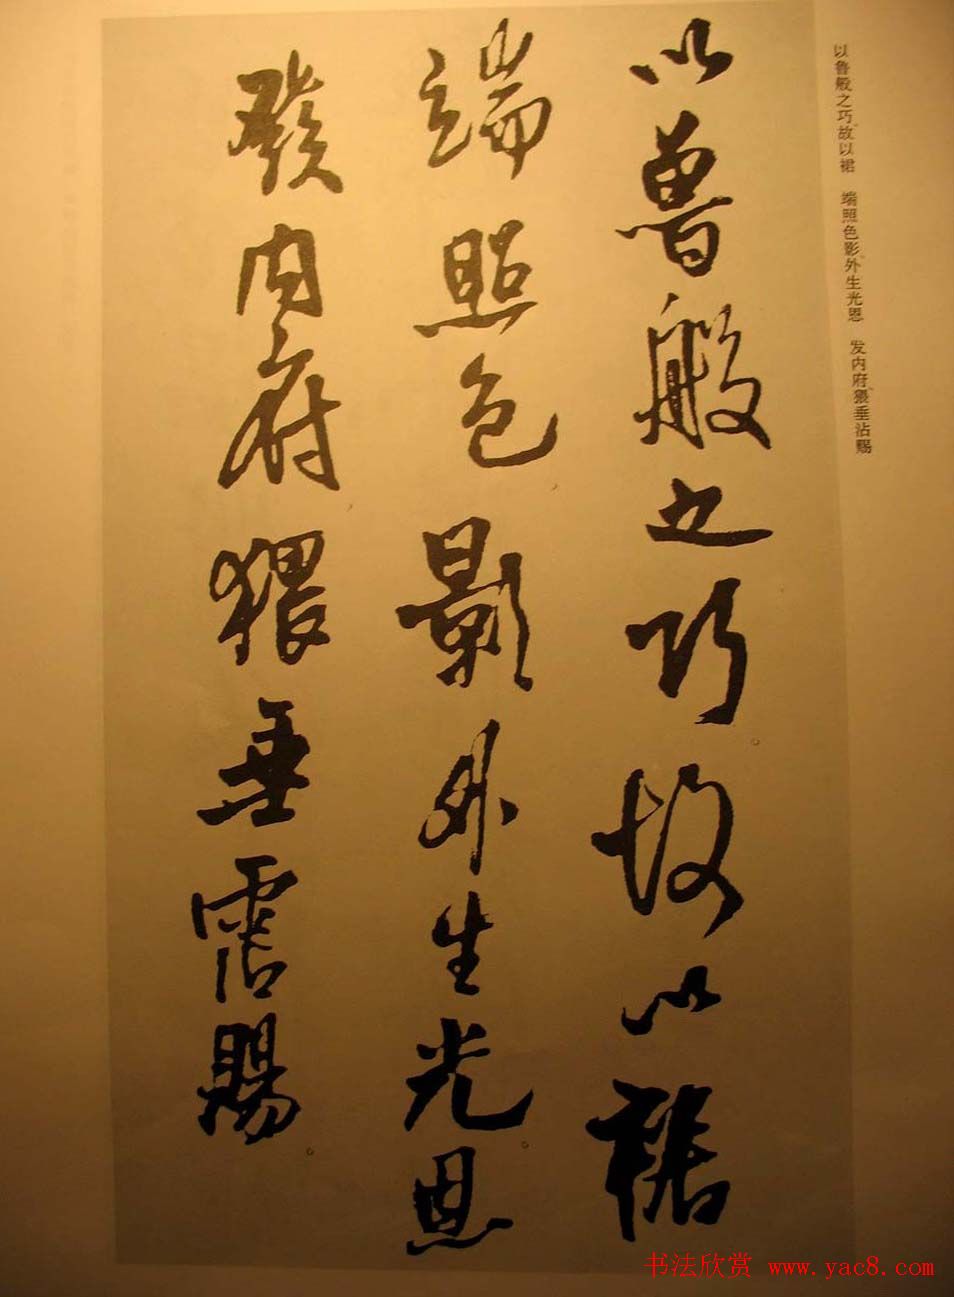 以鲁般之巧，故以裙　端照色影，外生光恩　发内府，猥垂沾赐
以魯般之巧故以裾
端照色影外生光恩
發内府猥垂霑賜
书法欣赏 www.yac8.com